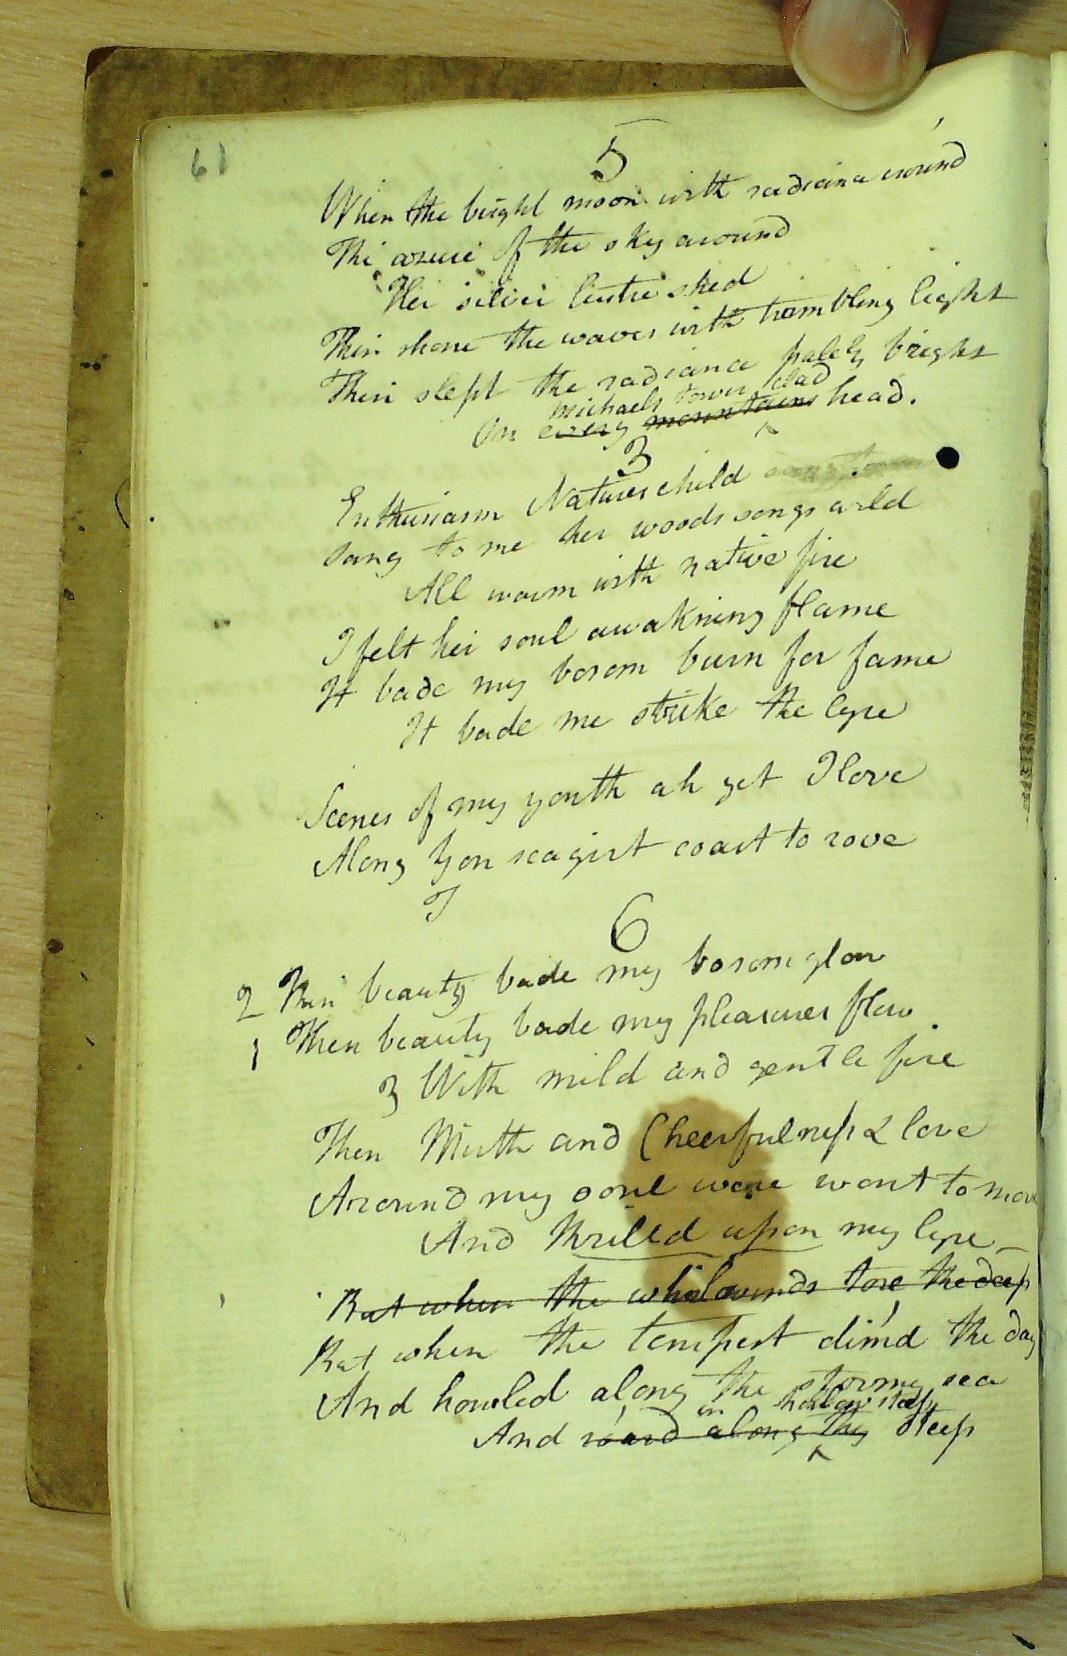 61
5
When the bright moon with radiance crownd
The azure of the sky around
Her silver lustre shed
Then shone the waves with trembling light
Then slept the radiance palely bright
michaels tower clad
On every mountains head.
3
Enthusiasm Natures child
Sang to me her woods songs wild
All warm with native fire
I felt her soul awakning flame
It bade my bosom burn for fame
It bade me strike the lyre
Scenes of my youth ah yet I love
Along yon seagirt coast to rove
I
6
2 Then beauty bade my bosom glow
1 Then beauty bade my pleasures flow
3 With mild and gentle fire
Then Mirth and Cheerfulness & love
Around my soul were wont to move
And thrilled upon my lyre
But when the whirlwinds tore the deep
But when the tempest dim'd the day
And howled along the stormy sea
in hollow
And roard along the steep